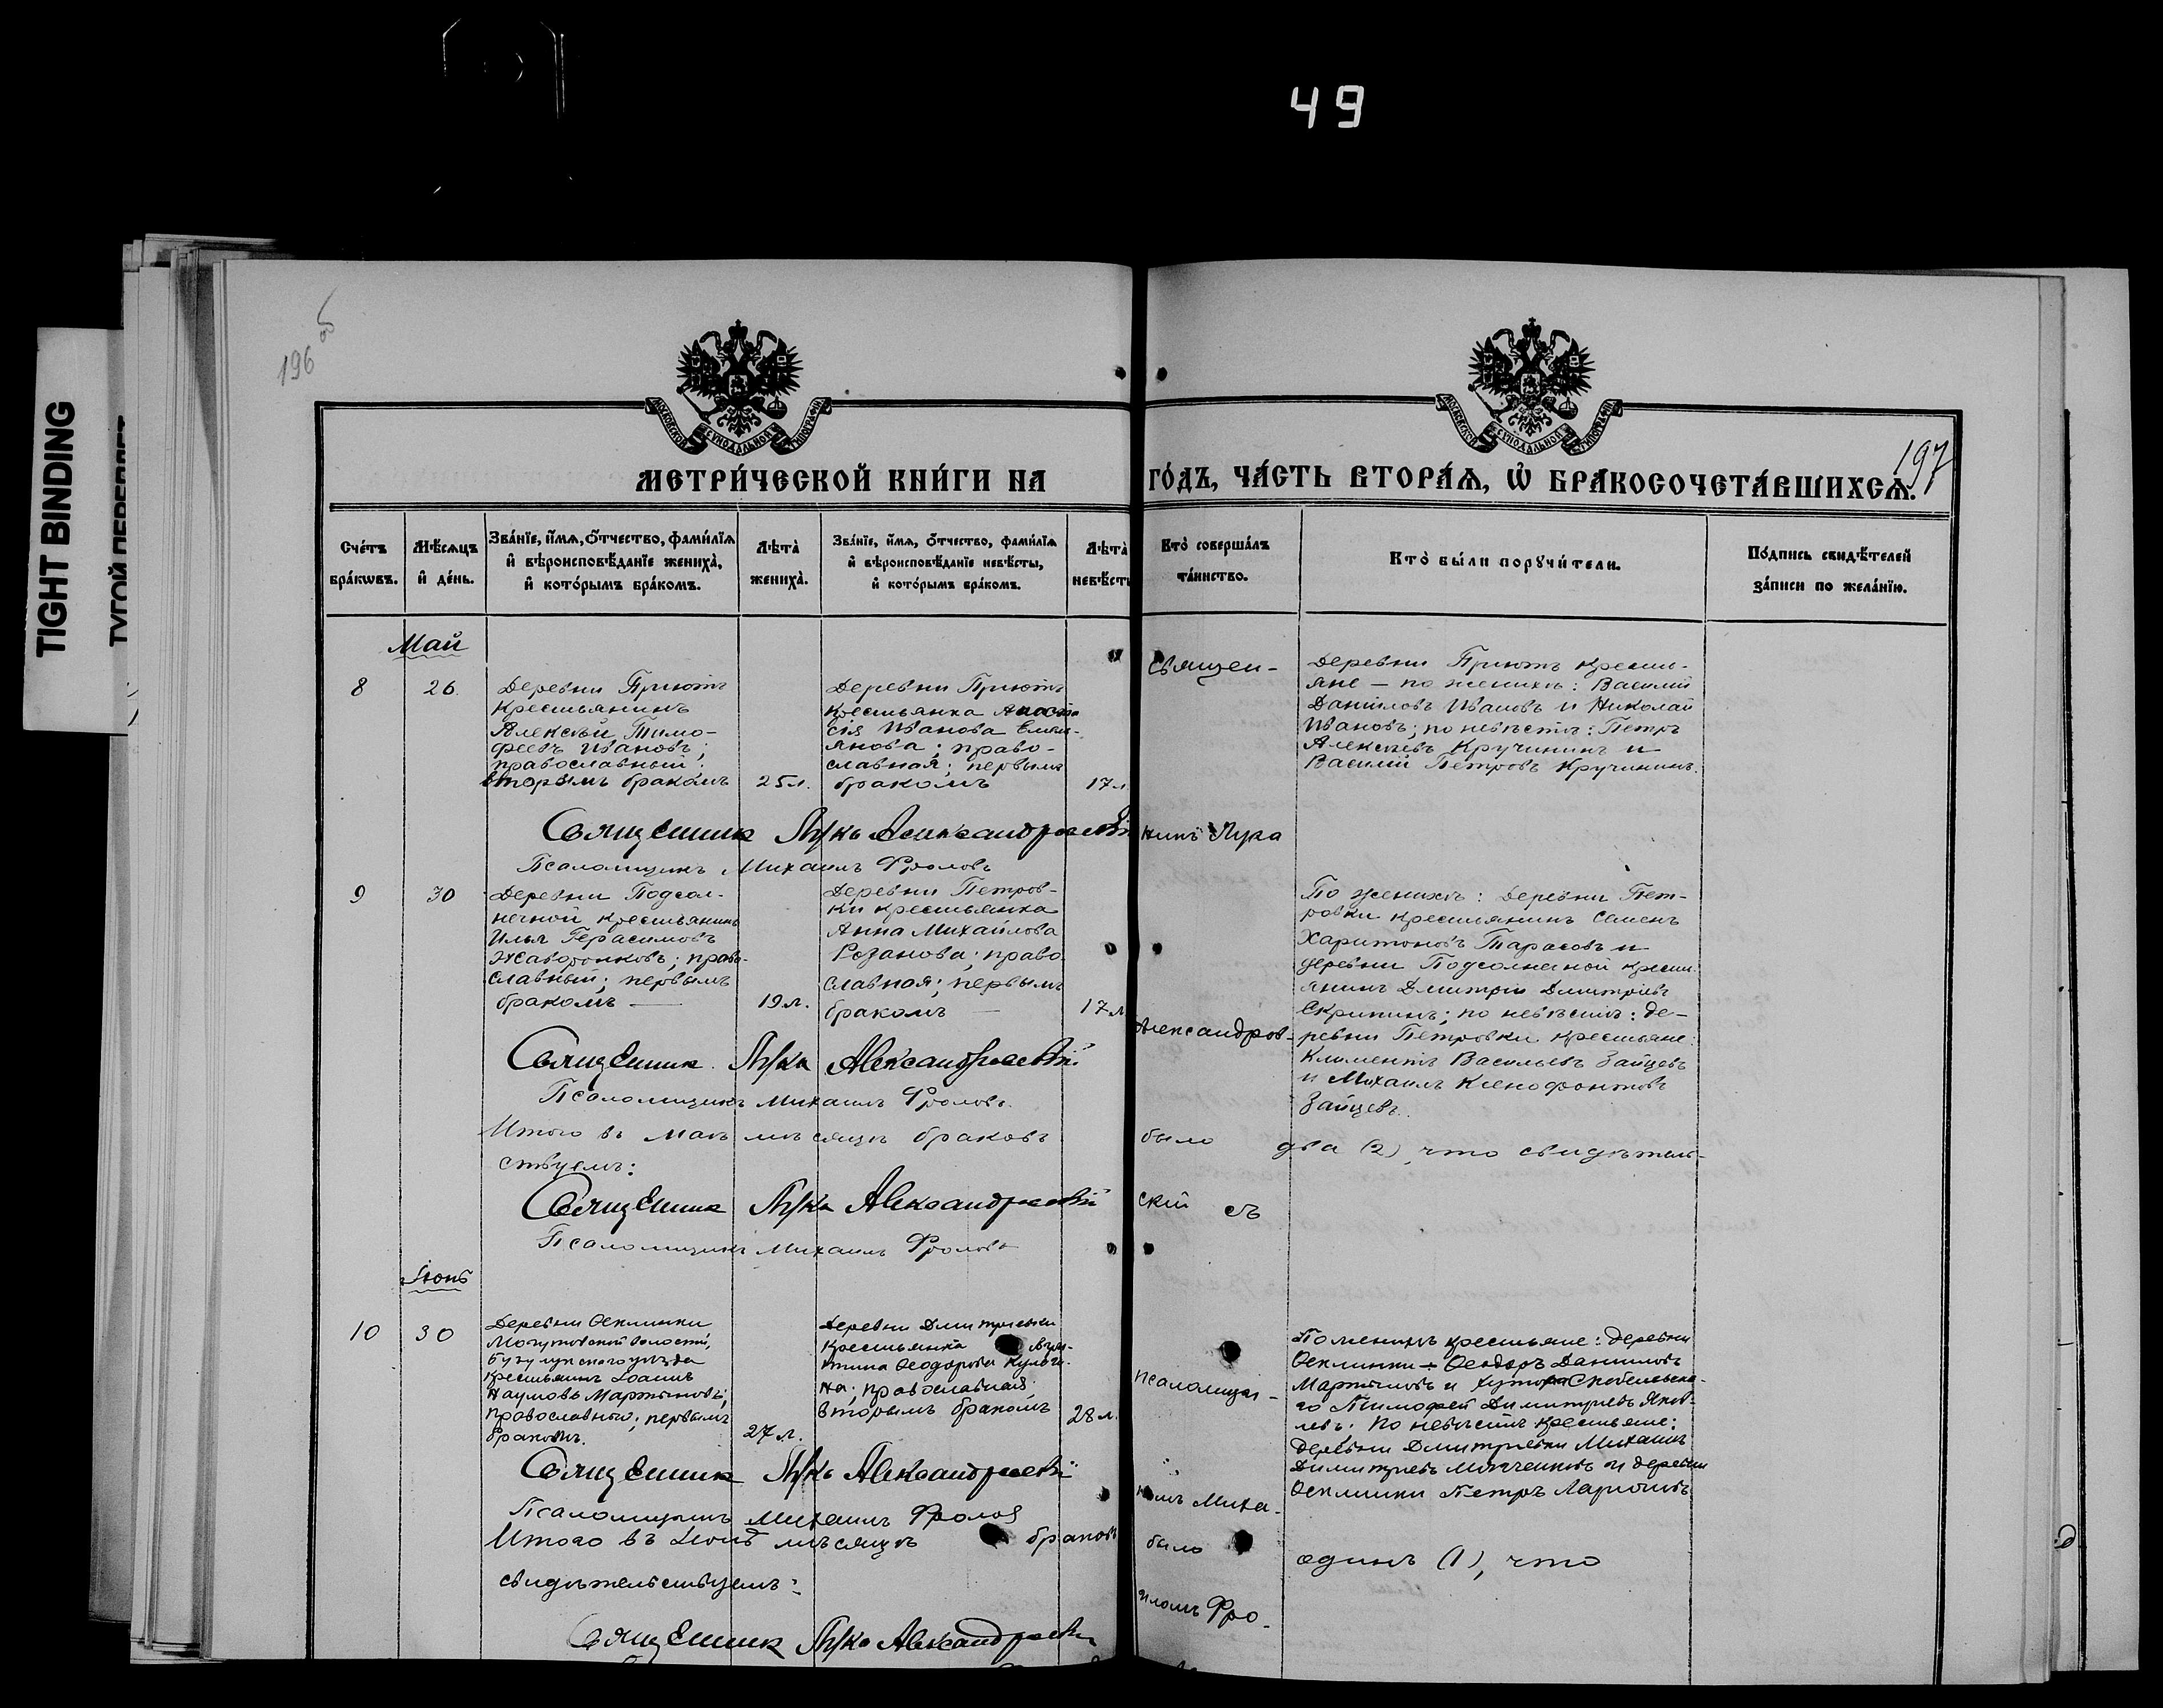 49
TIGHT BINDING
ТУГОЙ ПЕРЕПЛЕТ
196 об
197
МОСКОВСКОЙ СѴНОДАЛЬНОЙ ТИПОГРАФІИ
МОСКОВСКОЙ СѴНОДАЛЬНОЙ ТИПОГРАФІИ
МЕТРИ́ЧЕСКОЙ КНИ́ГИ НА ГО́ДЪ, ЧА́СТЬ ВТОРА́Ѧ, Ѡ҆ БРАКОСОЧЕТА́ВШИХСѦ.
Сче́тъ бра́кѡвъ.
Мѣ́сѧцъ и҆ де́нь.
Зва́нїе, и҆́мѧ, ѻ҆́тчество, фами́лїѧ
и҆ вѣроисповѣ́данїе жениха̀,
и҆ кото́рымъ бра́комъ.
Лѣта̀ жениха̀.
Зва́нїе, и҆́мѧ, ѻ҆́тчество, фами́лїѧ
и҆ вѣроисповѣ́данїе невѣ́сты,
и҆ кото́рымъ бра́комъ.
Лѣта̀ невѣ́сты
Кто̀ соверша́лъ та́инство.
Кто̀ бы́ли порꙋчи́тели.
По́дпись свидѣ́телей
за́писи по жела́нїю.
Май
8
26.
Деревни Прiютъ
Крестьянинъ
Алексѣй Тимо-
феевъ Ивановъ;
православный;
вторымъ бракомъ
25 л.
Деревни Прiютъ
Крестьянка Анаста
сiя Иванова Емель-
янова; право-
славная; первымъ
бракомъ
17 л.
Священ-
Деревни Прiютъ кресть-
яне – по женихѣ: Василiй
Даниловъ Ивановъ и Николай
Ивановъ; по невѣстѣ: Петръ
Алексѣевъ Кручининъ и
Василiй Петровъ Кручининъ.
Священникъ Лука Александровскiй
никъ Лука
Псаломщикъ Михаилъ Фроловъ
9
30
Деревни Подсол-
нечной крестьянинъ
Илья Герасимовъ
Жаворонковъ; право-
славный; первымъ
бракомъ —
19 л.
Деревни Петров-
ки крестьянка
Анна Михайлова
Розанова; право
славная; первымъ
бракомъ —
17 л
По женихѣ: Деревни Пет-
ровки крестьянинъ Семенъ
Харитоновъ Тарасовъ и
деревни Подсолнечной кресть
янинъ Дмитрiй Дмитрiевъ
Скрипинъ; по невѣстѣ: де-
ревни Петровки крестьяне:
Климентъ Васильевъ Зайцевъ
и Михаилъ Ксенофонтовъ
Зайцевъ.
Александров-
Священникъ Лука Александровскiй
Псаломщикъ Михаилъ Фроловъ.
Итого въ Маѣ мѣсяцѣ браковъ было два (2), что свидѣтель-
ствуемъ:
Священникъ Лука Александровскiй
скiй съ
Псаломщикъ Михаилъ Фроловъ
Iюнь
10
30
Деревни
Могутовской волости,
Бузулукскаго уѣзда
крестьянинъ Iоаннъ
Наумовъ Мартыновъ;
православного; первымъ
бракомъ.
27 л.
Деревни Дмитрiевки
Крестьянка
Ѳеодорова
на; православная;
вторымъ бракомъ
28 л.
псаломщи-
По женихѣ крестьяне: деревни
Ѳеодоръ Даниловъ
Мартыновъ и хутора
го Тимофей Димитрiевъ Яков-
левъ; по невѣстѣ крестьяне:
деревни Дмитрiевки Михаилъ
Димитрiевъ и деревни
Петръ Ларiоновъ
Священникъ Лука Александровскiй
комъ Миха-
Псаломщикъ Михаилъ Фроловъ
Итого въ Iюнѣ мѣсяцѣ браковъ было одинъ (1), что
свидѣтельствуемъ:
иломъ Фро-
Священникъ Лука Александровскiй